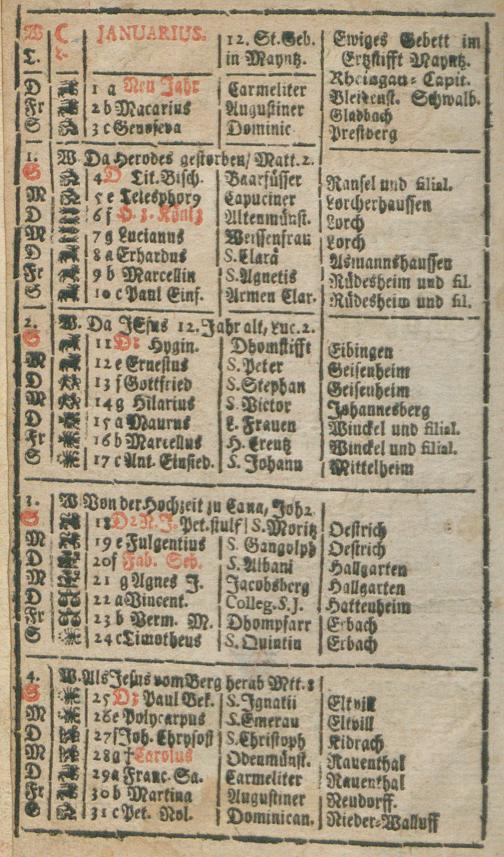 W C JANUARIUS. 12. St. Geb. Ewiges Gebett im
T. L. in Mayntz. Ertzstifft Mayntz.
Rheingau- Capit.
D 1 a Neu Jahr Carmeliter Bleidenst. Schwalb.
Fr 2 b Macarius Augustiner Gladbach
S 3 c Genofeva Dominic. Presberg
1. W. Da Herodes gestorben/ Matt. 2.
S 4 D Tit. Bisch. Baarfüsser Ransel und filial.
M 5 e Telesphor9 Capuciner Lorcherhaussen
D 6 f H. 3. König Altenmünst. Lorch
M 7 g Lucianns Weissenfrau Lorch
D 8 a Erhardus S. Clara Asmannshaussen
Fr 9 b Marcellin S. Agnetis Rüdesheim und fil.
S 10 c Paul Einf. Armen Clar. Rüdesheim und fil.
2. W. Da JEsus 12. Jahr alt, Luc. 2.
S 11 D1 Hygin. Dhomstifft Eibingen
M 12 e Ernestus S. Peter Geisenheim
D 13 f Gottfried S. Stephan Geisenheim
M 14 g Hilarius S. Victor Johannesberg
D 15 a Maurus L. Frauen Winckel und filial.
Fr 16 b Marcellus H. Creutz Winckel und filial.
S 17 c Ant. Einsied. S. Johann Mittelheim
3. W. Von der Hochzeit zu Cana, Joh 2.
S 18 D2 N. J. Pet. stulf S. Moritz Oestrich
M 19 e Fulgentius S. Gangolph Oestrich
D 20 f Fab. Seb. S. Albani Hallgarten
M 21 g Agnes J. Jacobsberg Hallgarten
D 22 a Vincent. Colleg. S. J. Hattenheim
Fr 23 b Verm. M. Dhompfarr Erbach
S 24 c Timotheus S. Quintin Erbach
4. W. Als Jesus vom Berg herab Mtt. 8
S 25 D3 Paul Bek. S. Ignatii Eltvill
M 26 e Polycarpus S. Emeran Eltvill
D 27 f Joh. Chrysost S. Christoph Kidrach
M 28 g † Carolus Odenmünst. Rauenthal
D 29 a Franc. Sa. Carmeliter Rauenthal
Fr 30 b Martina Augustiner Neudorff.
S 31 c Pet. Nol. Dominican. Nieder-Walluff